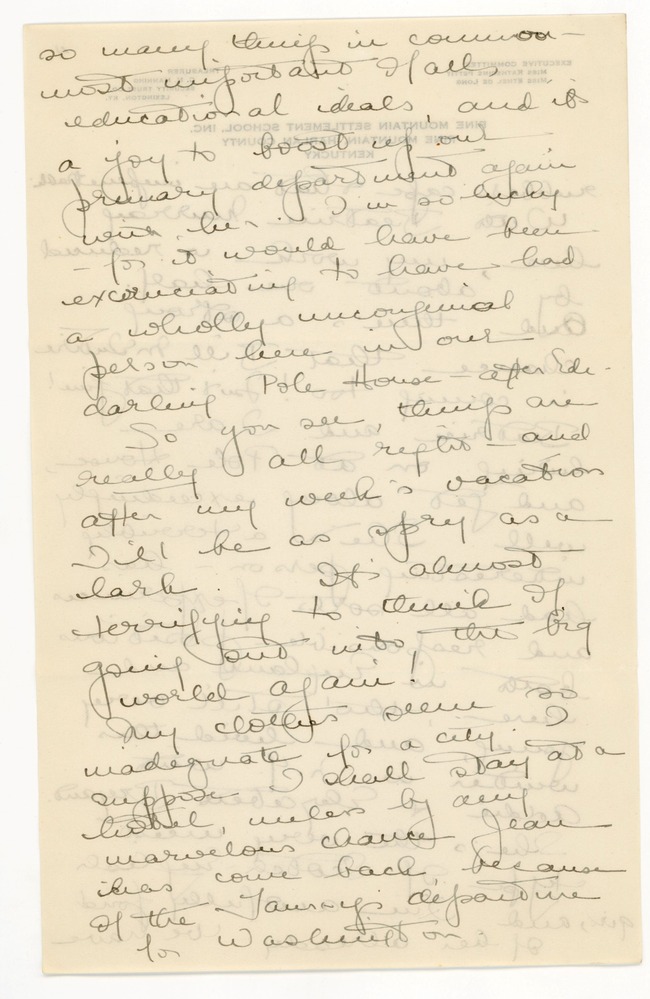 so many things in common —
most important of all,
educational ideals, and it's
a joy to boost up our
primary department again
with her. I'm so lucky
— for it would have been
excruciating to have had
a wholly uncongenial
person here in our
darling Pole House — after Ede.
So you see, things are
really all right — and
after my week's vacation
I'll be as spry as a
lark. It's almost
terrifying to think of
going out into the big
world again!
My clothes seem so
inadequate for a city. I
suppose I shall stay at a
hotel, unless by any
marvelous chance Jean
has come back because
of the departure
for Washington